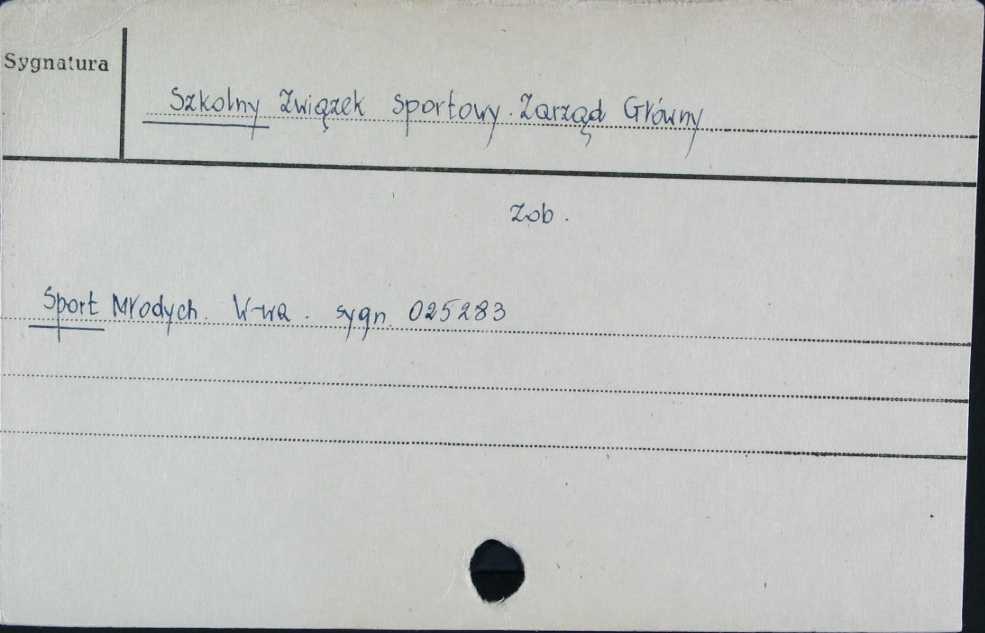 Sygnatura
Szkolny Związek Sportowy. Zarząd Główny
Zob.
Sport Młodych. W-wa. sygn. 025283